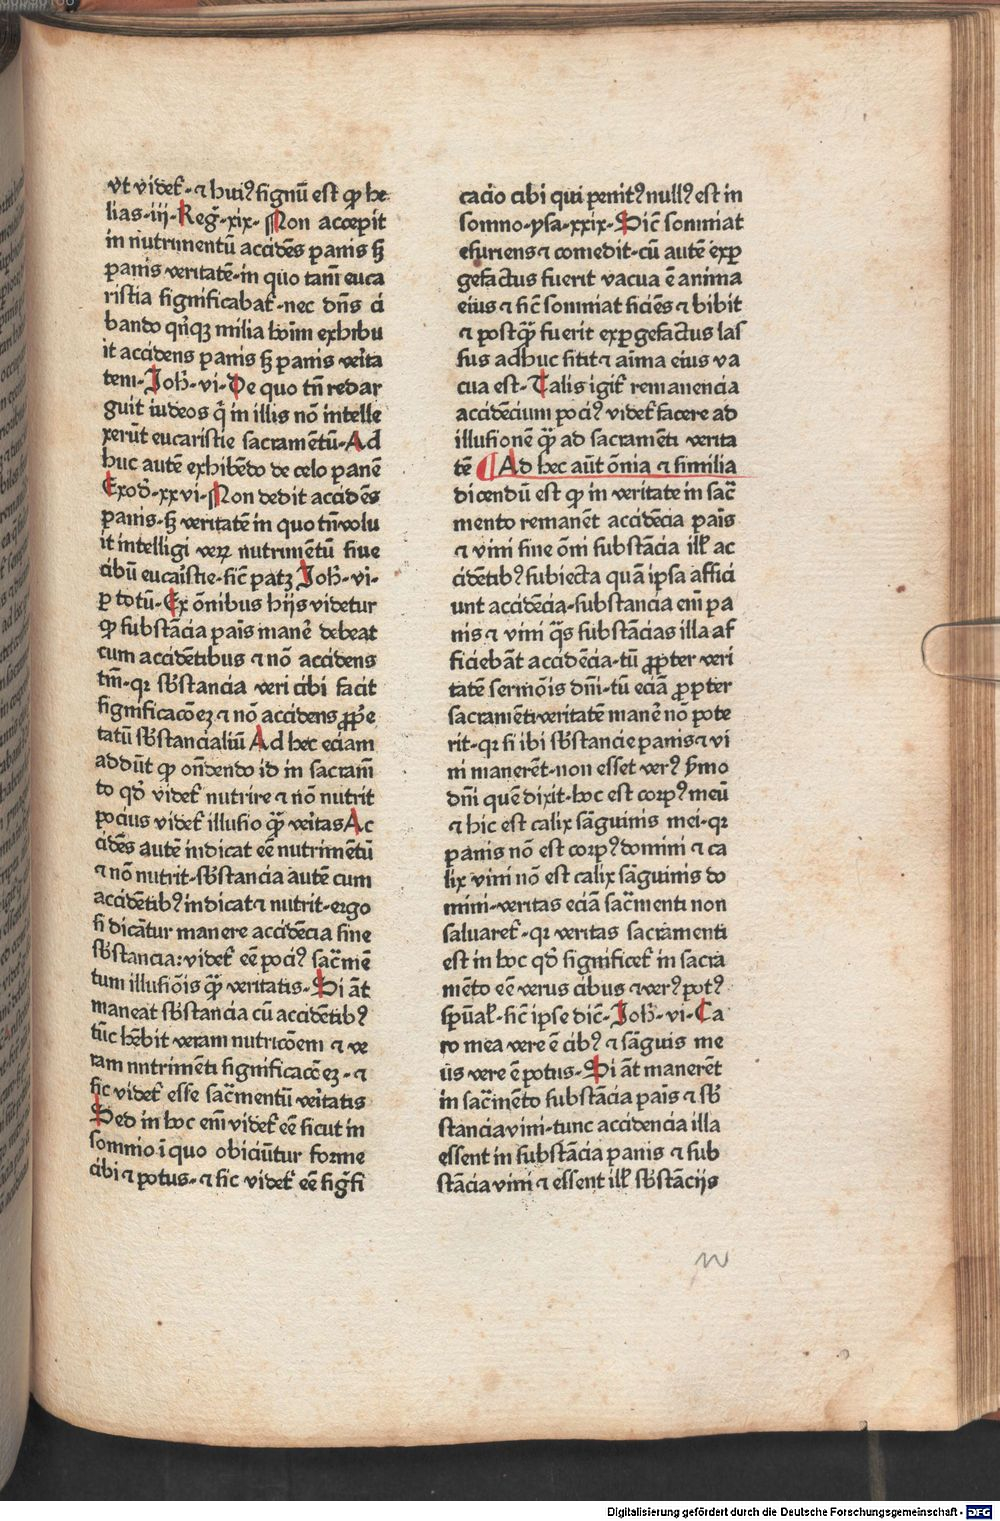 vt videt᷑· ⁊ huiꝰ signū est ꝙ he
lias·iij·Reg᷑·xix· Non accepit
in nutrimentū accidēs panis sꝫ
panis veritatē·in quo tam̄ euca
ristia significabat᷑·nec dn̄s ci
bando qn̄qꝫ milia hoīm exhibu
it accidens panis sꝫ panis veri̾ta
tem·Joh̄·vi·De quo tn̄ redar
guit iudeos q̄ in illis nō intelle
xerūt eucaristie sacramētū·Ad
huc autē exhibēdo de celo panē
Exod̄·xxvi·Non dedit accidēs
panis·sꝫ veritatē in quo tn̄ volu
it intelligi verꝝ nutrimētū siue
cibū eucaristie·sic̄ patꝫ Joh̄·vi·
ꝑ totū·Ex ōnibus hijs videtur
ꝙ substācia panis manē debeat
cum accidētibus ⁊ nō accidens
tm̄·qꝛ sb̄stancia veri cibi facit
significacōeꝫ ⁊ nō accidens ꝓpᷓe
tatū sb̄stancialiū Ad hec eciam
addūt ꝙ on̄dendo id in sacram̄
to qd̄ videt᷑ nutrire ⁊ nō nutrit
pocius videt᷑ illusio qᷓꝫ veri̾tas Ac
cidēs autē indicat eē nutrimētū
⁊ nō nutrit·sb̄stancia autē cum
accidētibꝰ indicat ⁊ nutrit·ergo
si dicātur manere accidēcia sine
sb̄stancia: videt᷑ eē pociꝰ sac̄mē
tum illusiōis qᷓꝫ veritatis·Si āt
maneat sb̄stancia cū accidētibꝰ
tūc hēbit veram nutricōem ⁊ ve
ram nutrimēti significacōeꝫ·⁊
sic videt᷑ esse sac̄mentū veri̾tatis
Sed in hoc em̄ videt᷑ eē sicut in
somnio ī quo obiciūtur forme
cibi ⁊ potus·⁊ sic videt᷑ eē sig̾fi
cacio cibi qui penitꝰ nullꝰ est in
somno·ysa·xxix·Sic̄ somniat
esuriens ⁊ comedit·cū autē exꝑ
gefactus fuerit vacua ē anima
eius ⁊ sic̄ somniat siciēs ⁊ bibit
⁊ postqᷓꝫ fuerit exꝑgefactus las
sus adhuc sitit ⁊ aīma eius va
cua est·Talis igit᷑ remanencia
accidēcium pociꝰ videt᷑ facere ad
illusionē qᷓꝫ ad sacramēti verita
tē ¶ Ad hec aūt ōnia ⁊ similia
dicendū est ꝙ in veritate in sac̄
mento remanēt accidēcia pais̄
⁊ vini sine ōni substācia ill᷑ ac
cidētibꝰ subiecta quā ipsa affici
unt accidēcia·substancia em̄ pa
nis ⁊ vini qᷓs substācias illa af
ficiebāt accidēcia·tū ꝓpter veri
tatē sermōis dn̄i·tū eciā ꝓpter
sacramēti veritatē manē nō pote
rit·qꝛ si ibi sb̄stancie panis ⁊ vi
ni manerēt·non esset verꝰ s̾mo
dn̄i quē dixit·hoc est corpꝰ meū
⁊ hic est calix sāguinis mei·qꝛ
panis nō est corpꝰ domini ⁊ ca
lix vini nō est calix sāguinis do
mini·veritas eciā sac̄menti non
saluaret᷑·qꝛ veritas sacramenti
est in hoc qd̄ significet᷑ in sacra
mēto eē verus cibus ⁊ verꝰ potꝰ
spūal᷑·sic̄ ipse dic̄·Joh̄·vi·Ca
ro mea vere ē cibꝰ ⁊ sāguis me
us vere ē potus·Si āt manerēt
in sac̄mēto substācia pais̄ ⁊ sb̄
stancia vini·tunc accidencia illa
essent in substācia panis ⁊ sub
stācia vini ⁊ essent ill᷑ sb̄stācijs
Digitalisierung gefördert durch die Deutsche Forschungsgemeinschaft - DFG